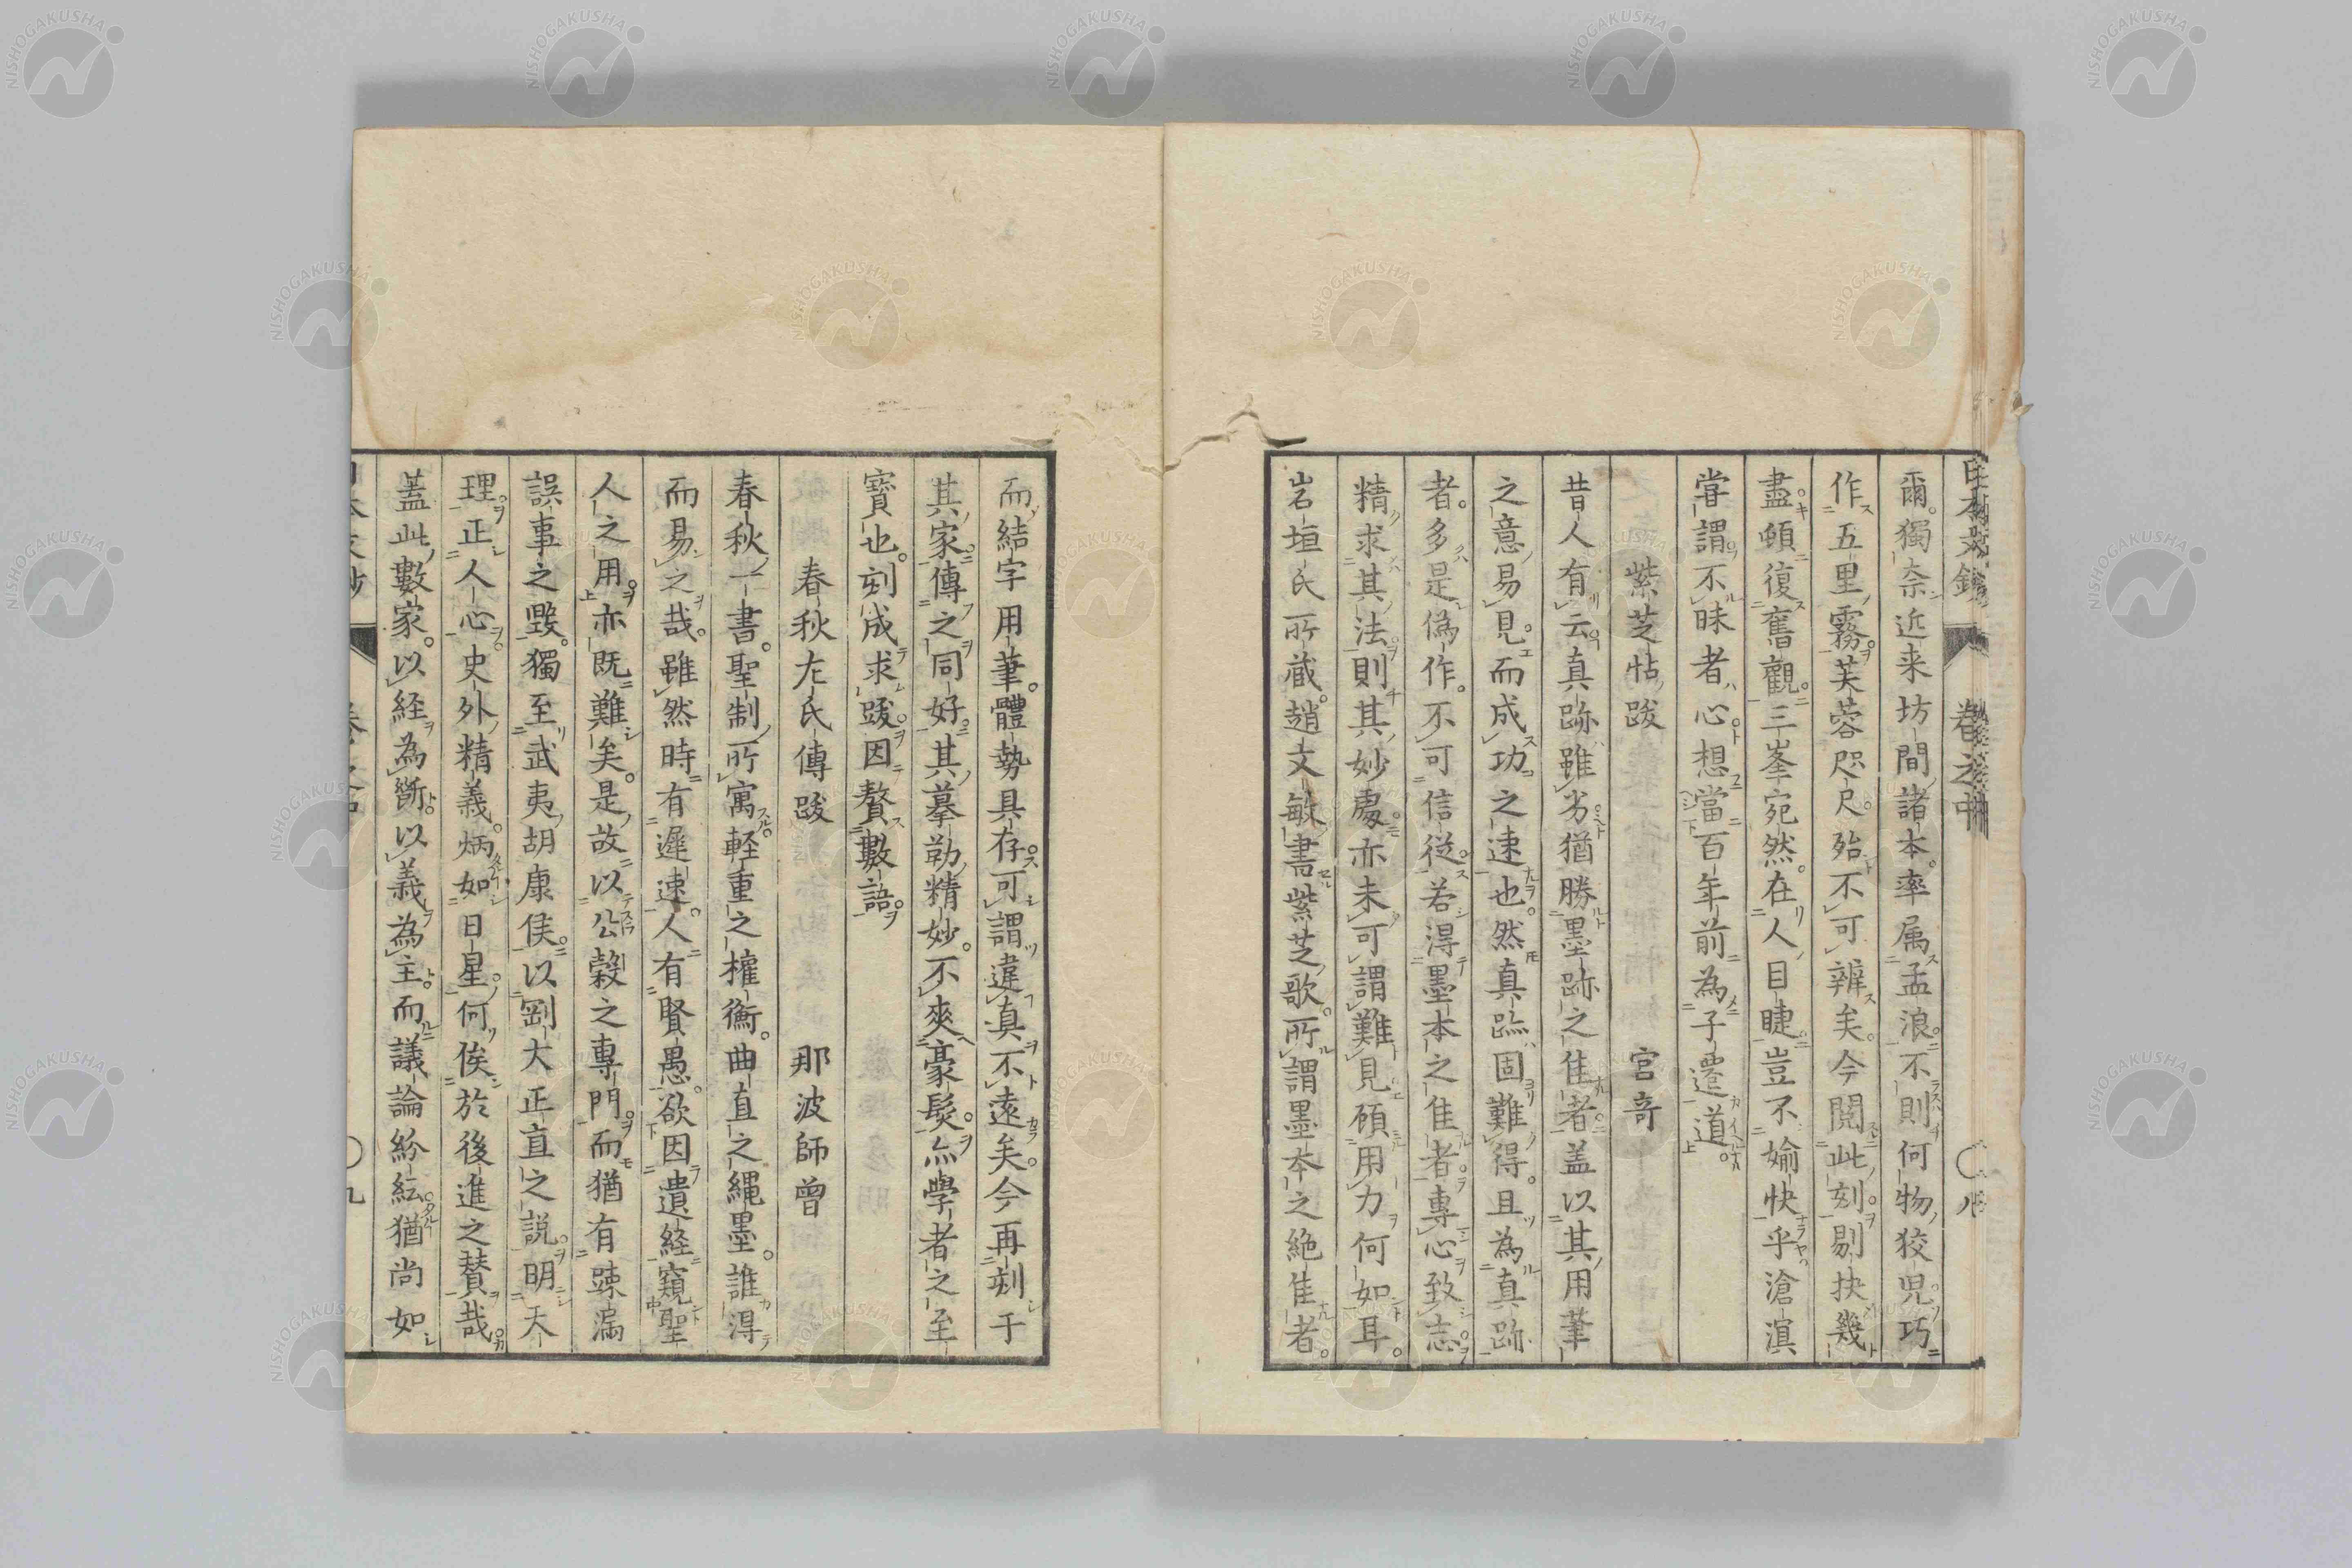 日本文鈔 卷之中 〇八
爾。獨奈近来坊間諸本。率属孟浪。不則何物狡児。巧
作五里霧。芙蓉咫尺。殆不可辨矣。今閲此刻。剔抉幾
盡。頓復舊觀。三峯宛然。在人目睫。豈不愉快乎。滄溟
甞謂不昧者心。想當百年前為子遷道。
紫芝帖跋 宮竒
昔人有云。真跡雖劣。猶勝墨跡之佳者。盖以其用筆
之意易見。而成功之速也。然真跡固難得。且為真跡
者。多是偽作。不可信従。若得墨本之佳者。專心致志。
精求其法則其妙處。亦未可謂難見。碩用力何如耳。
岩垣氏所蔵。趙文敏書紫芝歌。所謂墨本之絶佳者。
而結字用筆。體勢具存。可謂違真不遠矣。今再刻于
其家。傳之同好。其摹勒精妙。不爽豪髮。亦學者之至
寶也。刻成求跋。因贅數語。
春秋左氏傳跋 那波師曾
春秋一書。聖制所寓。軽重之權衡。曲直之繩墨。誰得
而易之哉。雖然時有遲速。人有賢愚。欲因遺経窺聖
人之用。亦既難矣。是故以公穀之專門。而猶有踈漏
誤事之毀。獨至武夷胡康侯。以剛大正直之説。明天
理。正人心。史外精義。炳如日星。何俟於後進之賛哉。
蓋此數家。以経為斷。以義為主。而議論紛紜。猶尚如